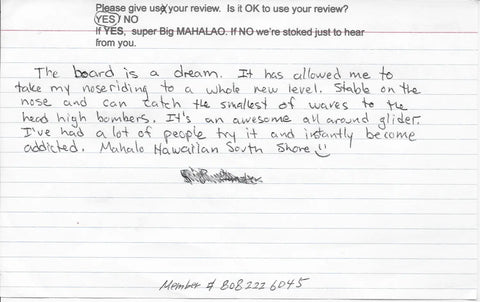 Please give us your review. Is it OK to use your review?
YES / NO
If YES, super Big MAHALAO. If NO we're stoked just to hear
from you.
The board is a dream. It has allowed me to
take my noseriding to a whole new level. Stable on the
nose and can catch the smallest of waves to the
head high bombers. It's an awesome all around glider.
I've had a lot of people try it and instantly become
addicted. Mahalo Hawaiian South Shore
Member # 808 222 6045